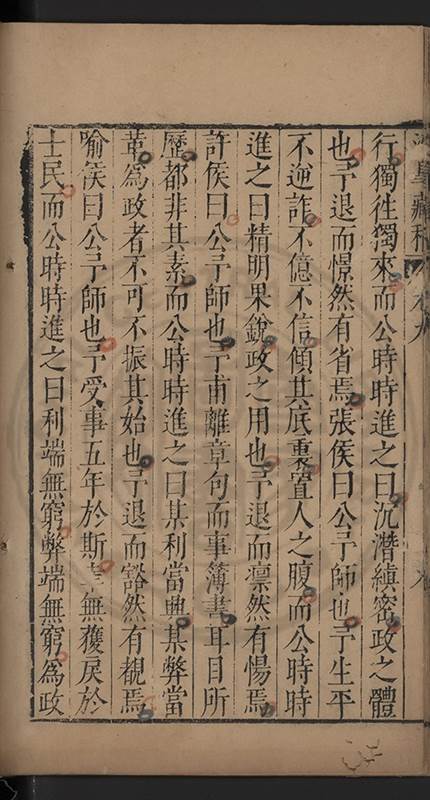 皇藏稿 卷九
行獨徃獨來而公時時進之曰沉潛縝密政之體
也予退而憬然有省焉張侯曰公予師也予生平
不逆詐不億不信傾其底裏置人之腹而公時時
進之曰精明果銳政之用也予退而凛然有惕焉
許侯曰公予師也予甫離章句而事簿書耳目所
歷都非其素而公時時進之曰某利當興某弊當
革為政者不可不振其始也予退而豁然有覩焉
喻侯曰公予師也予受事五年於斯無獲戾於
士民而公時時進之曰利端無窮弊端無窮為政